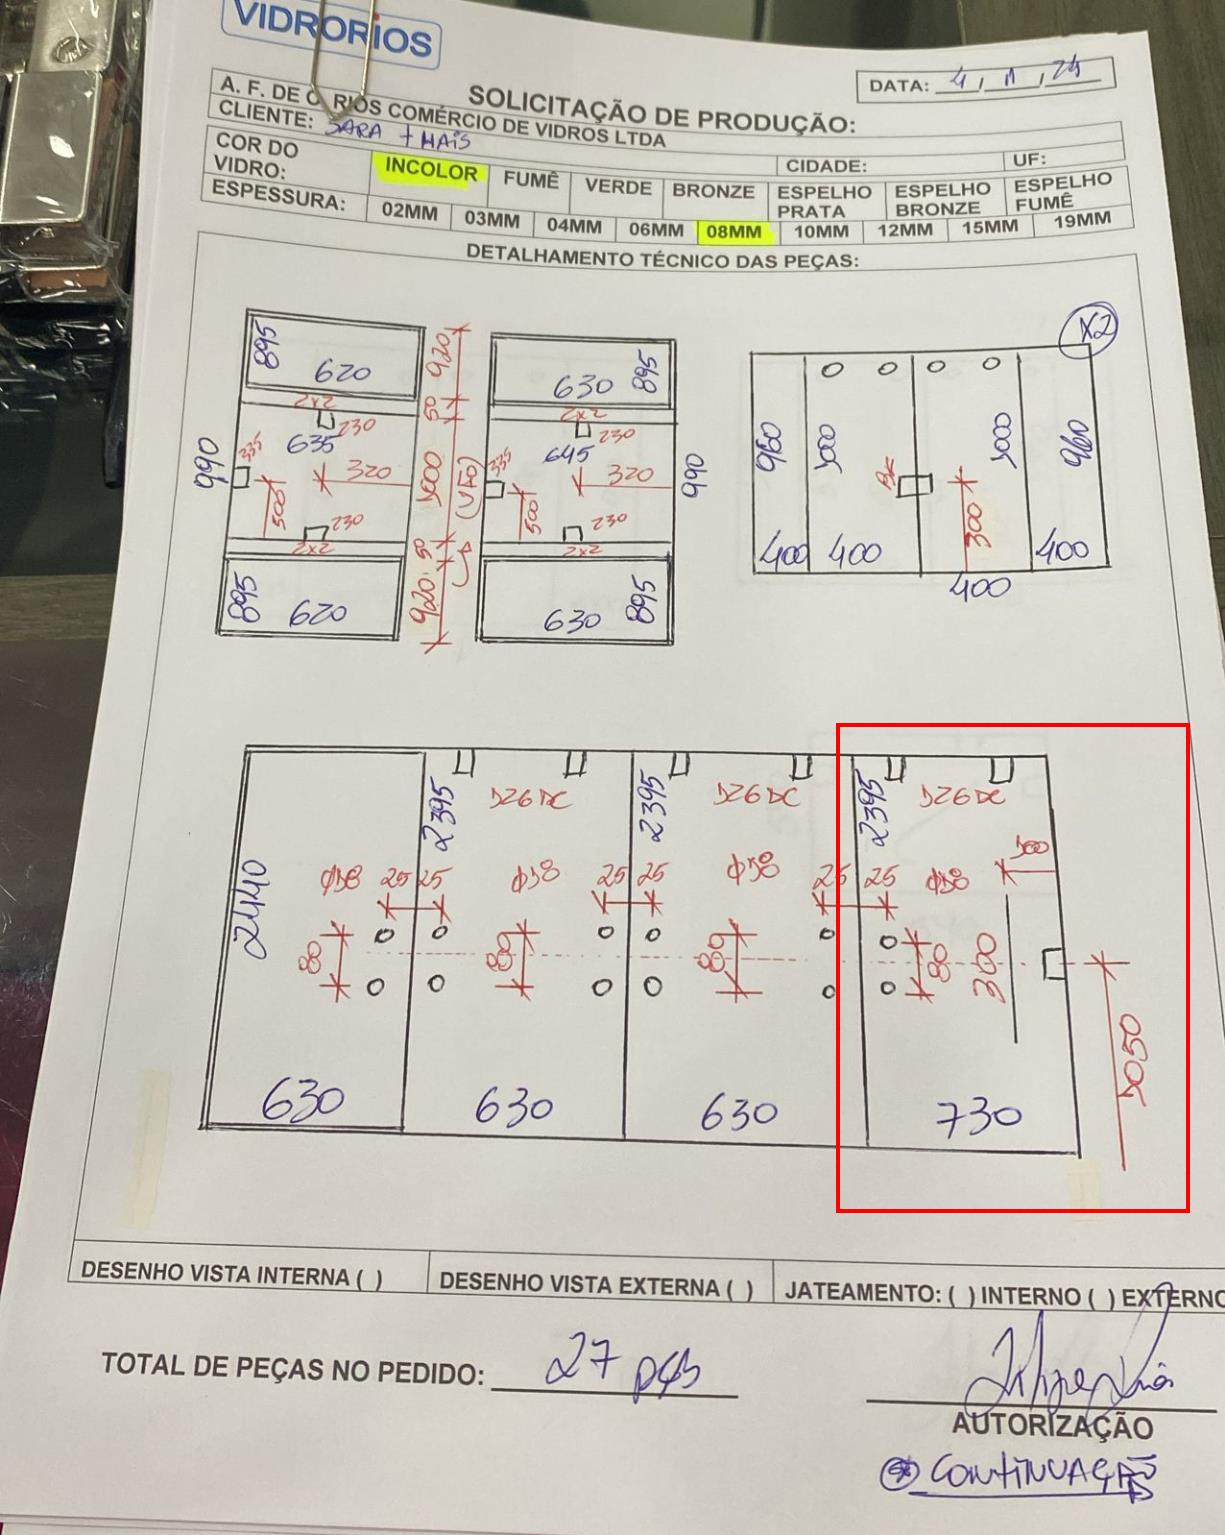 VIDRORIOS
DATA: 4 / 11 / 24
SOLICITAÇÃO DE PRODUÇÃO:
A. F. DE C. RIOS COMÉRCIO DE VIDROS LTDA
CLIENTE: SARA + MAIS
CIDADE: UF:
COR DO VIDRO: INCOLOR FUMÊ VERDE BRONZE ESPELHO PRATA ESPELHO BRONZE ESPELHO FUMÊ
ESPESSURA: 02MM 03MM 04MM 06MM 08MM 10MM 12MM 15MM 19MM
DETALHAMENTO TÉCNICO DAS PEÇAS:
895 620 920 630 895 X2
2x2 50 2x2
230 635 230 645
990 335 320 1000 (VÃO) 335 320 990 960 1000 1000 960
500 230 500 230 300
2x2 50 2x2
400 400 400 400
895 620 920 630 895
2395 2395 2395
1326 DC 1326 DC 1326 DC
2440 Φ18 25 25 Φ18 25 25 Φ18 25 25 Φ18 100
80 80 80 80 300
1050
630 630 630 730
DESENHO VISTA INTERNA ( ) DESENHO VISTA EXTERNA ( ) JATEAMENTO: ( ) INTERNO ( ) EXTERNO
TOTAL DE PEÇAS NO PEDIDO: 27 pçs
AUTORIZAÇÃO
CONTINUAÇÃO